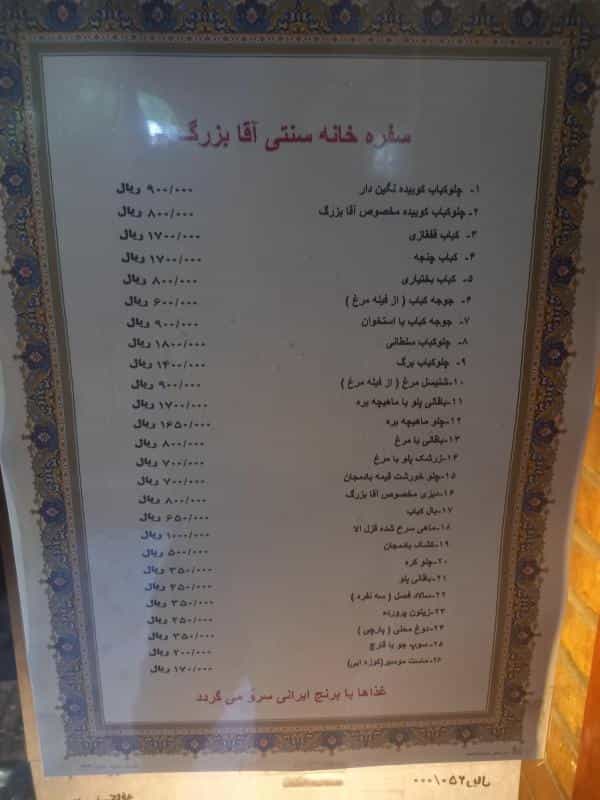 سفره خانه سنتی آقا بزرگ
۱- چلوکباب کوبیده نگین دار ۹۰۰/۰۰۰ ریال
۲- چلوکباب کوبیده مخصوص آقا بزرگ ۸۰۰/۰۰۰ ریال
۳- کباب قفقازی ۱۷۰۰/۰۰۰ ریال
۴- کباب چنجه ۱۷۰۰/۰۰۰ ریال
۵- کباب بختیاری ۸۰۰/۰۰۰ ریال
۶- جوجه کباب ( از فیله مرغ ) ۶۰۰/۰۰۰ ریال
۷- جوجه کباب با استخوان ۹۰۰/۰۰۰ ریال
۸- چلوکباب سلطانی ۱۸۰۰/۰۰۰ ریال
۹- چلوکباب برگ ۱۴۰۰/۰۰۰ ریال
۱۰-شنیسل مرغ ( از فیله مرغ ) ۹۰۰/۰۰۰ ریال
۱۱-باقالی پلو با ماهیچه بره ۱۷۰۰/۰۰۰ ریال
۱۲-چلو ماهیچه بره ۱۶۵۰/۰۰۰ ریال
۱۳-باقالی با مرغ ۸۰۰/۰۰۰ ریال
۱۴-زرشک پلو با مرغ ۷۰۰/۰۰۰ ریال
۱۵-چلو خورشت قیمه بادمجان ۷۰۰/۰۰۰ ریال
۱۶-دیزی مخصوص آقا بزرگ ۸۰۰/۰۰۰ ریال
۱۷-بال کباب ۶۵۰/۰۰۰ ریال
۱۸-ماهی سرخ شده قزل الا ۱۰۰۰/۰۰۰ ریال
۱۹-کشک بادمجان ۵۰۰/۰۰۰ ریال
۲۰-چلو کره ۳۵۰/۰۰۰ ریال
۲۱-باقالی پلو ۴۵۰/۰۰۰ ریال
۲۲-سالاد فصل ( سه نفره ) ۳۵۰/۰۰۰ ریال
۲۳-زیتون پرورده ۲۵۰/۰۰۰ ریال
۲۴-دوغ محلی ( پارچی ) ۳۵۰/۰۰۰ ریال
۲۵-سوپ جو با قارچ ۲۰۰/۰۰۰ ریال
۲۶-ماست موسیر(کوزه ایی) ۱۷۰/۰۰۰ ریال
غذاها با برنج ایرانی سرو می گردد